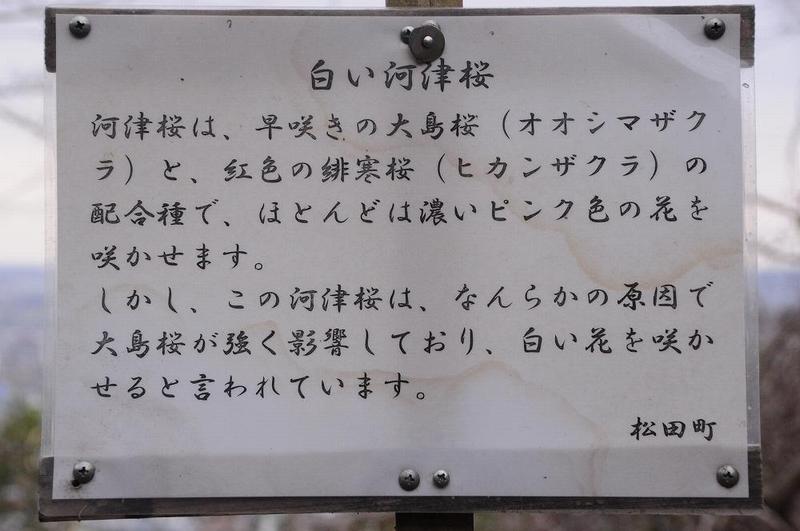 白い河津桜
河津桜は、早咲きの大島桜（オオシマザク
ラ）と、紅色の緋寒桜（ヒカンザクラ）の
配合種で、ほとんどは濃いピンク色の花を
咲かせます。
しかし、この河津桜は、なんらかの原因で
大島桜が強く影響しており、白い花を咲か
せると言われています。
松田町